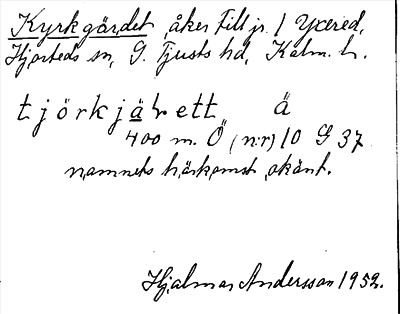 Kyrkgärdet, åker till jr. 1 Yxered,
Hjorteds sn, S. Tjusts hd, Kalm. l.
tjörkjäḷett, ä
400 m. Ö (n:r) 10 G 37
namnets härkomst okänt.
Hjalmar Andersson 1952.